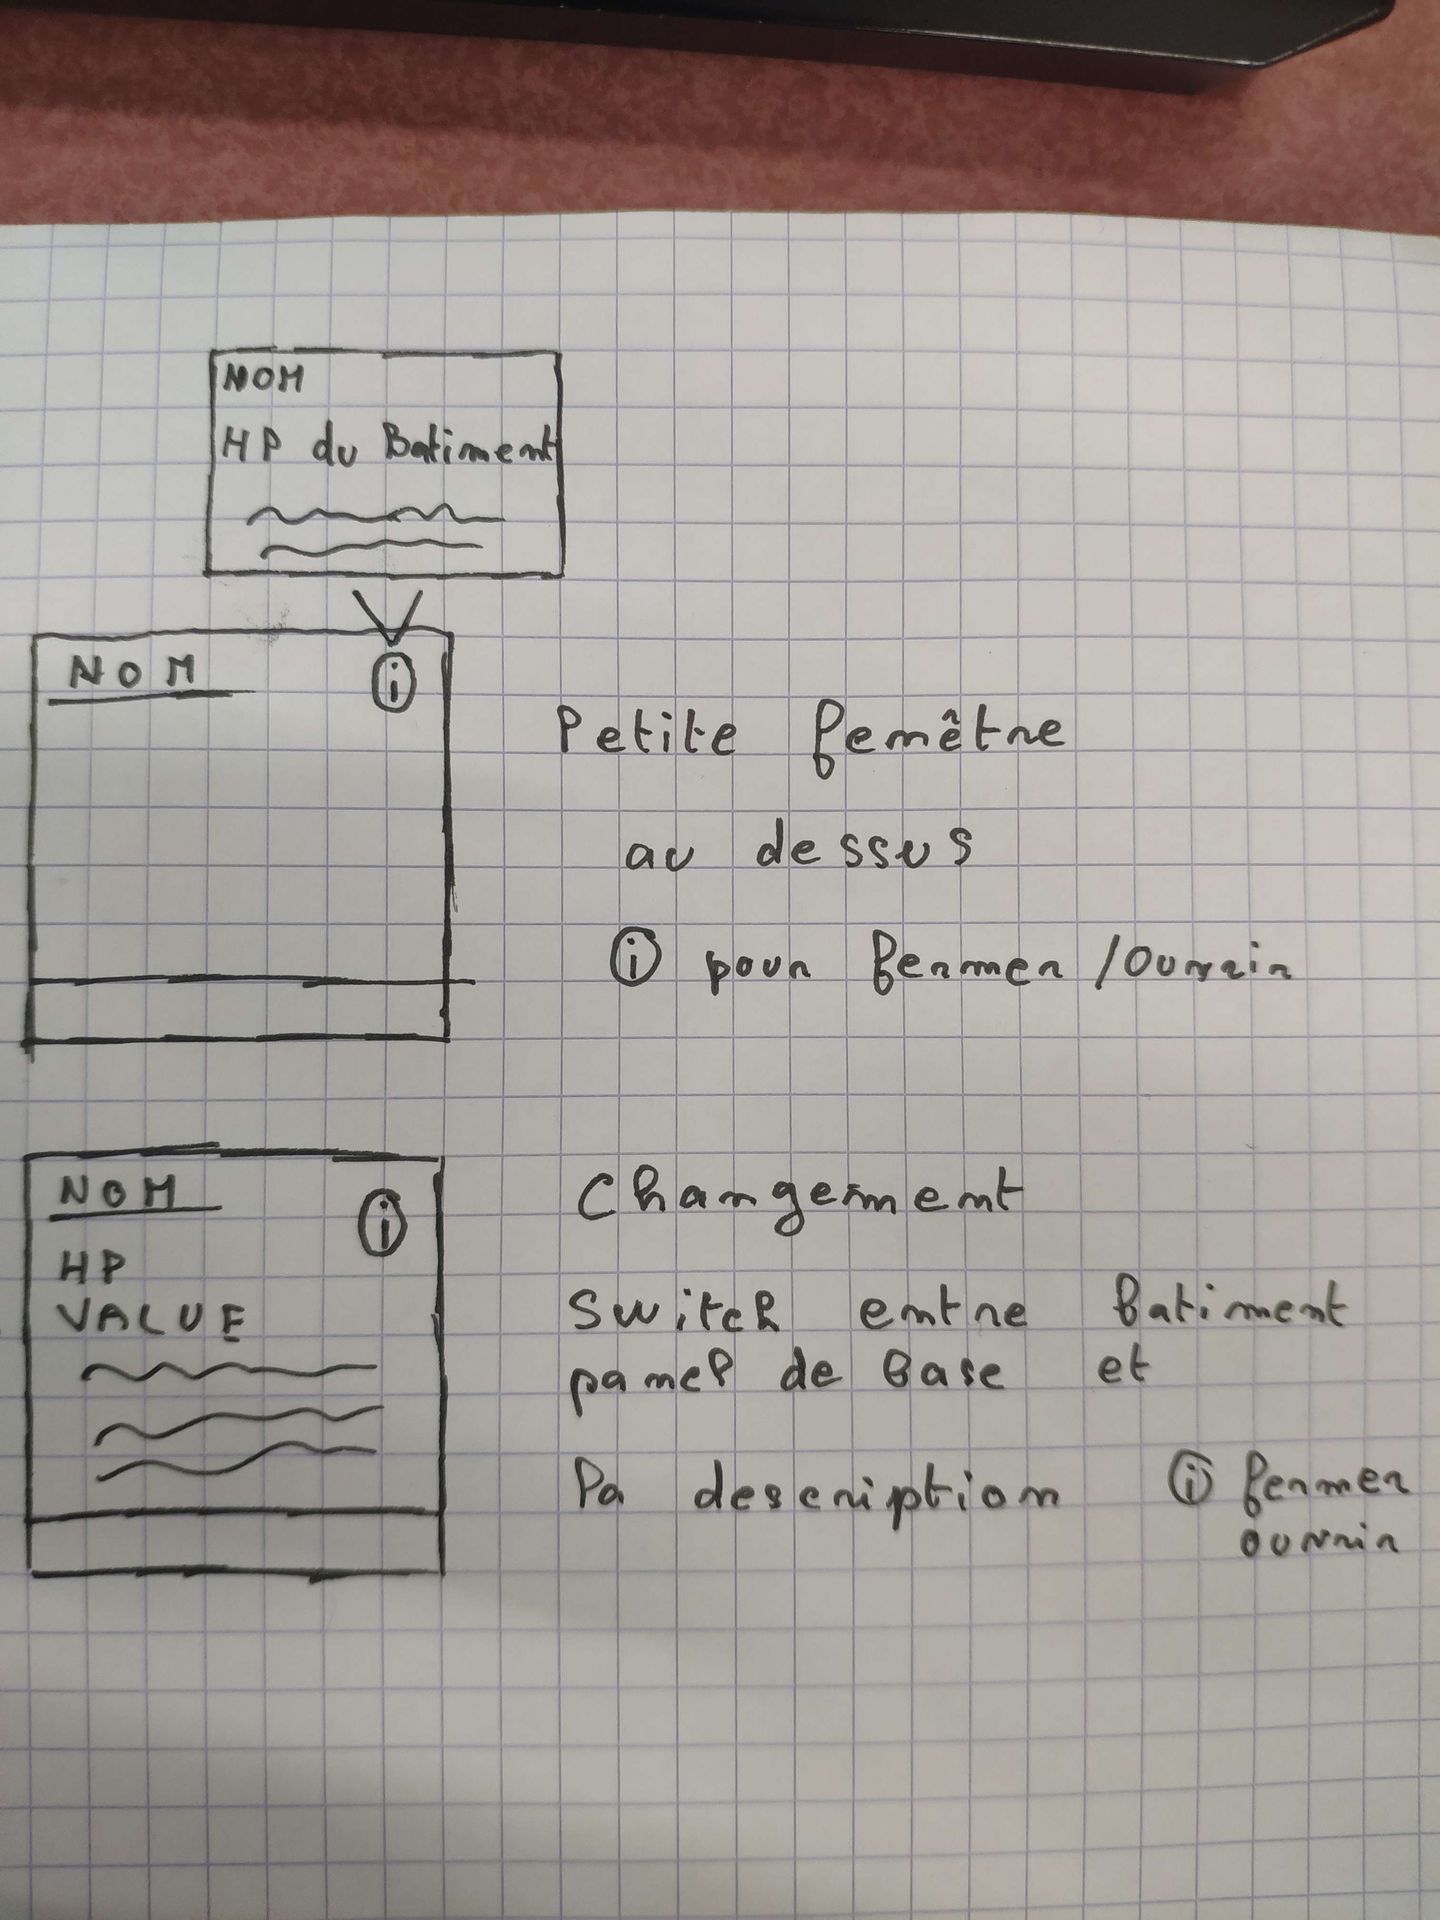 NOM
HP du Batiment
NOM
i
Petite fenêtre
au dessus
i pour fermer / Ouvrir
NOM
i
HP
VALUE
Changement
Switch entre batiment
panel de base et
la description
i fermer
ouvrir